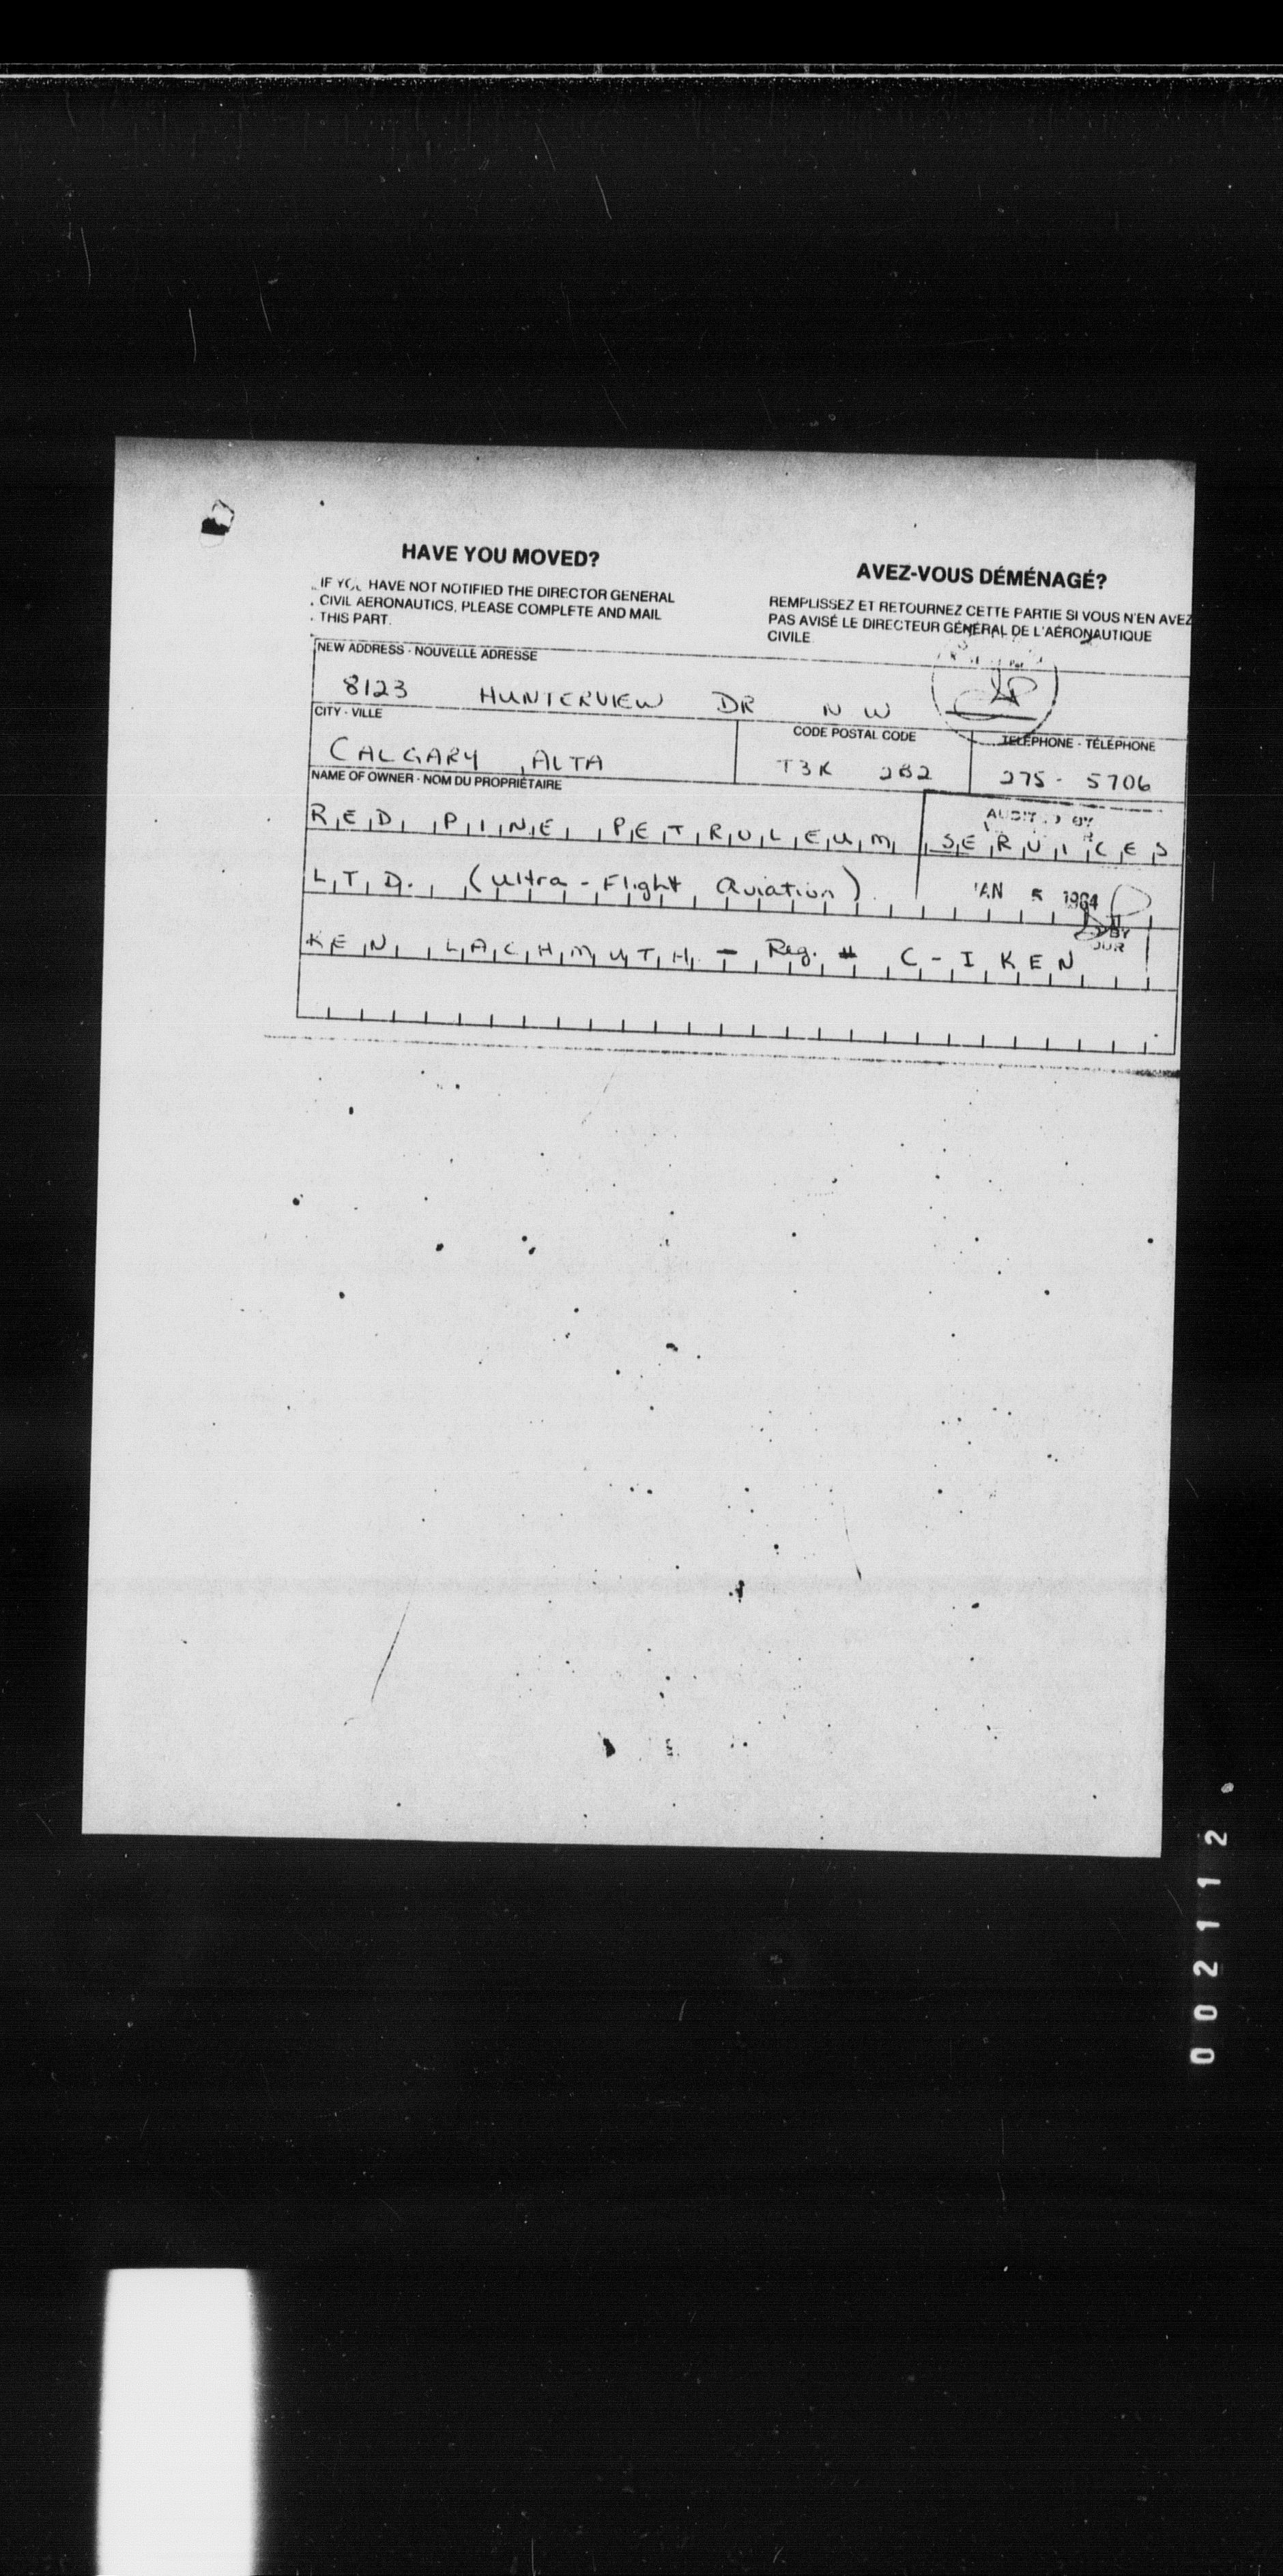 HAVE YOU MOVED?
IF YOU HAVE NOT NOTIFIED THE DIRECTOR GENERAL
CIVIL AERONAUTICS, PLEASE COMPLETE AND MAIL
THIS PART.
AVEZ-VOUS DÉMÉNAGÉ?
REMPLISSEZ ET RETOURNEZ CETTE PARTIE SI VOUS N'EN AVEZ
PAS AVISÉ LE DIRECTEUR GÉNÉRAL DE L'AÉRONAUTIQUE
CIVILE
NEW ADDRESS - NOUVELLE ADRESSE
8123 HUNTERVIEW DR N W
CITY - VILLE
CALGARY, ALTA
CODE POSTAL CODE
T3K 2B2
TELEPHONE - TÉLÉPHONE
275 - 5706
NAME OF OWNER - NOM DU PROPRIÉTAIRE
RED PINE PETROLEUM SERVICES
AUDITED BY
LTD. (Ultra-Flight Aviation)
JAN 5 1984
BY
KEN LACHMUTH - Reg. # C-IKEN
002112